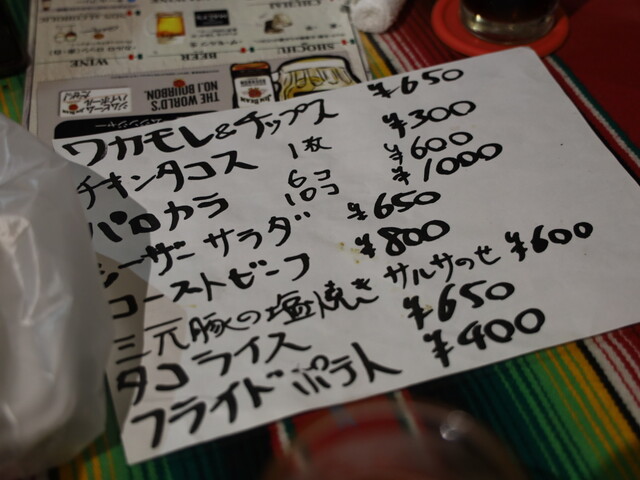 ワカモレ&チップス ¥650
チキンタコス 1枚 ¥300
パロカラ 6コ ¥600
10コ ¥1000
シーザーサラダ ¥650
ローストビーフ ¥800
三元豚の塩焼き サルサのせ ¥600
タコライス ¥650
フライドポテト ¥400
WINE
BEER
SHOCHU
THE WORLD'S
NO.1 BOURBON.
JIM BEAM